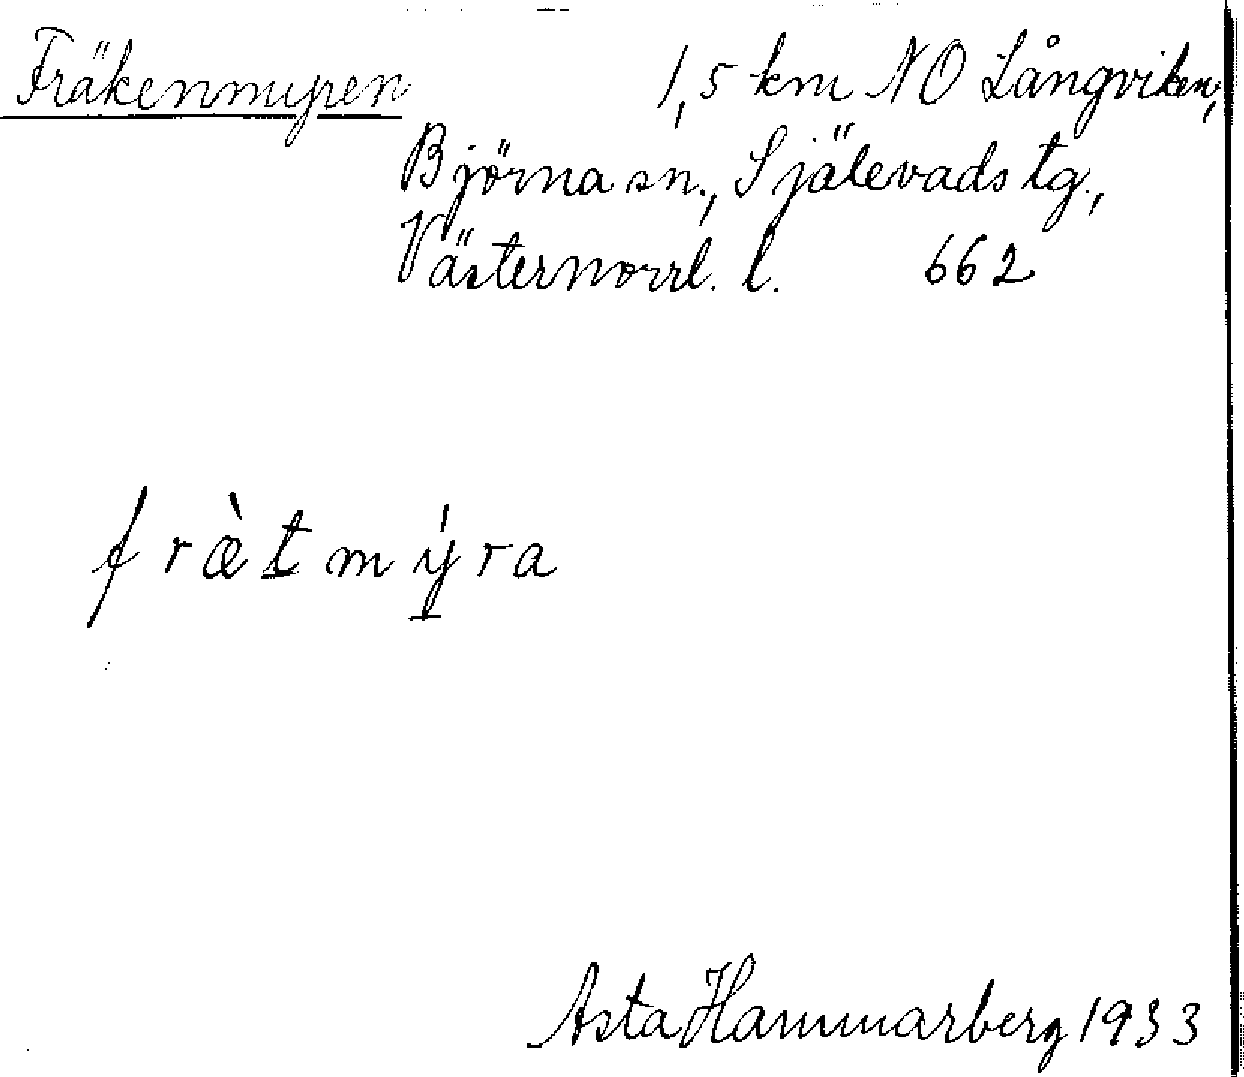 Fräkenmyren 1,5 km NO Långviken,
Björna sn., Själevads tg.,
Västernorrl. l. 662
fræ̀tmýra
Asta Hammarberg 1933